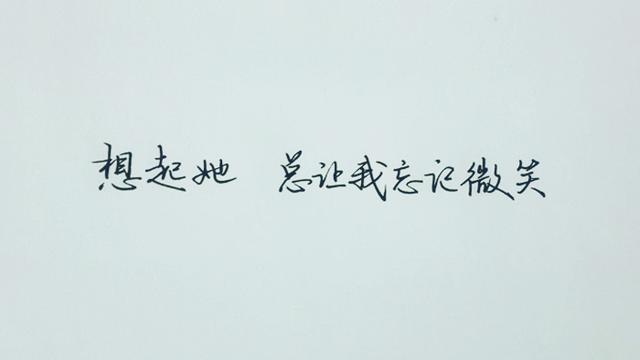 想起她 总让我忘记微笑